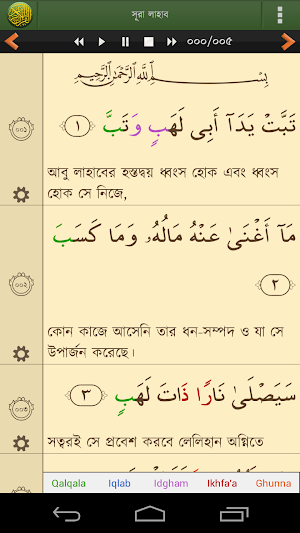 সূরা লাহাব
000/005
بِسْمِ ٱللَّهِ ٱلرَّحْمَٰنِ ٱلرَّحِيمِ
001
تَبَّتْ يَدَآ أَبِى لَهَبٍۢ وَتَبَّ ﴿١﴾
আবু লাহাবের হস্তদ্বয় ধ্বংস হোক এবং ধ্বংস
হোক সে নিজে,
002
مَآ أَغْنَىٰ عَنْهُ مَالُهُۥ وَمَا كَسَبَ
﴿٢﴾
কোন কাজে আসেনি তার ধন-সম্পদ ও যা সে
উপার্জন করেছে।
003
سَيَصْلَىٰ نَارًۭا ذَاتَ لَهَبٍۢ ﴿٣﴾
সত্বরই সে প্রবেশ করবে লেলিহান অগ্নিতে
Qalqala Iqlab Idgham Ikhfa'a Ghunna